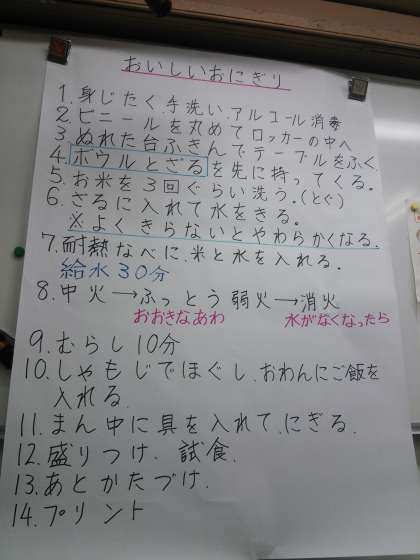 おいしいおにぎり
1. 身じたく、手洗い、アルコール消毒
2. ビニールを丸めてロッカーの中へ
3. ぬれた台ふきんでテーブルをふく
4. ボウルとざるを先に持ってくる。
5. お米を3回ぐらい洗う。(とぐ)
6. ざるに入れて水をきる。
※よくきらないとやわらかくなる。
7. 耐熱なべに、米と水を入れる。
給水30分
8. 中火→ふっとう 弱火→消火
おおきなあわ 水がなくなったら
9. むらし10分
10. しゃもじでほぐし、おわんにご飯を
入れる。
11. まん中に具を入れて、にぎる。
12. 盛りつけ、試食。
13. あとかたづけ。
14. プリント